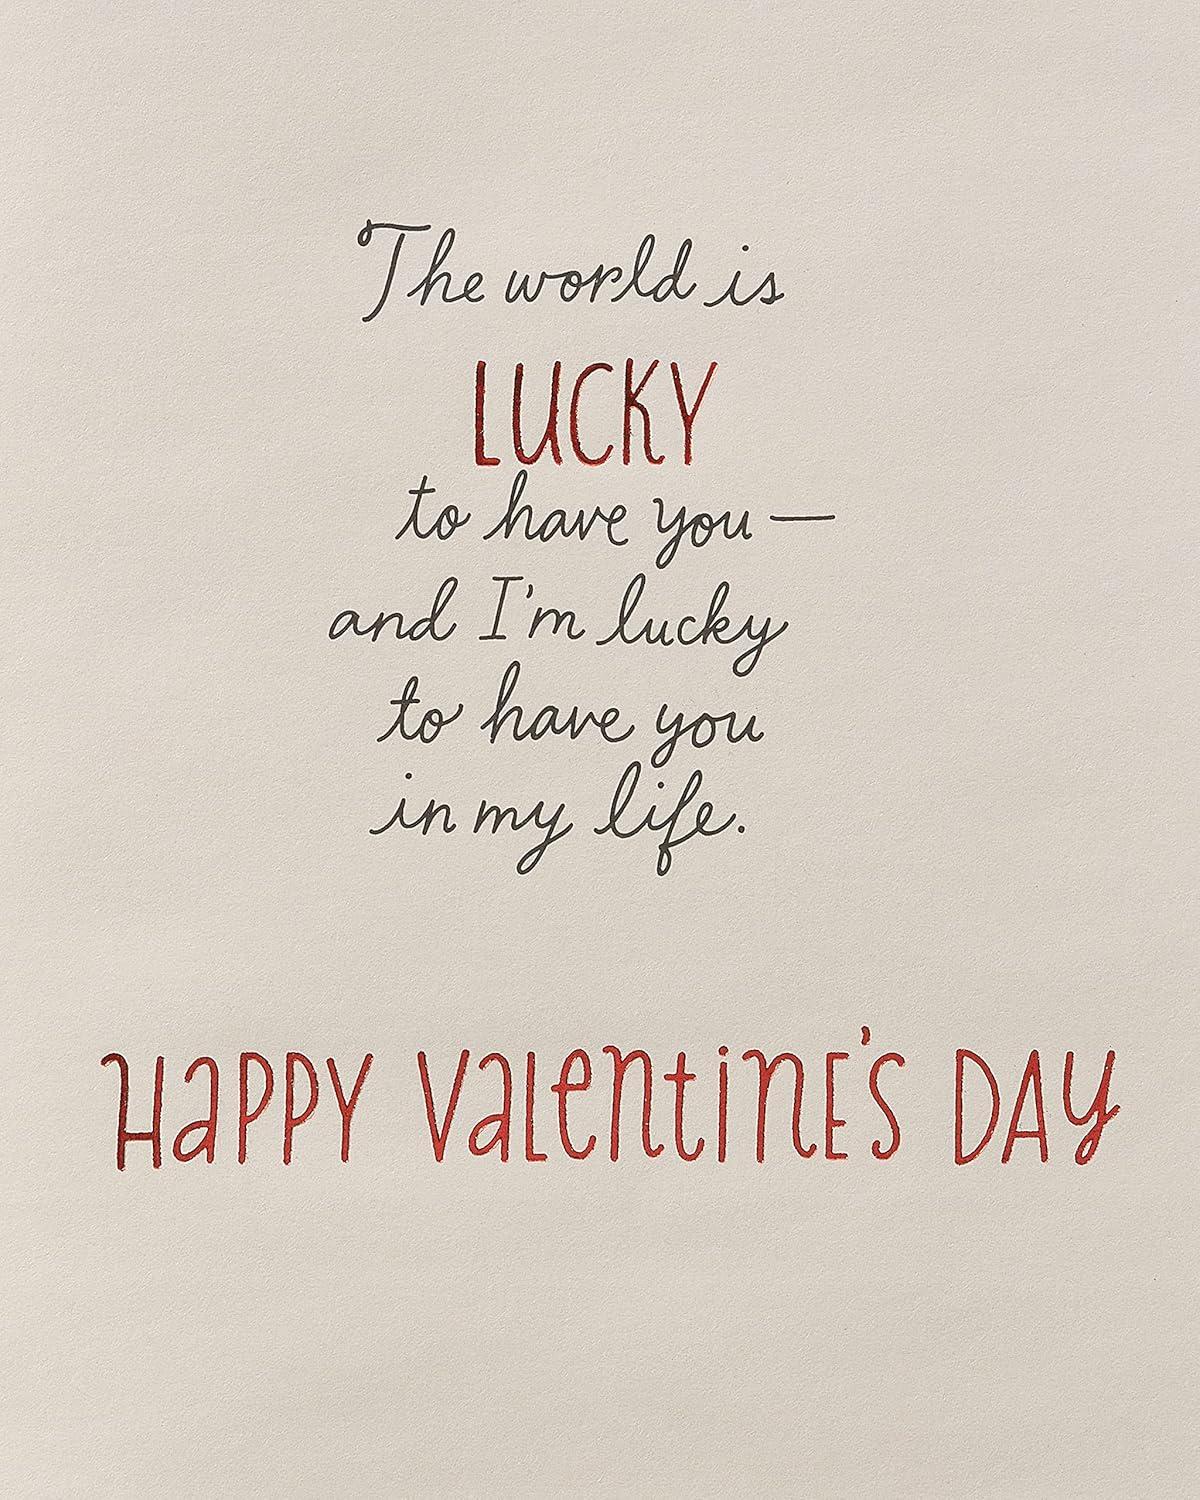 The world is
LUCKY
to have you —
and I'm lucky
to have you
in my life.
HaPPY ValentinE'S DAY